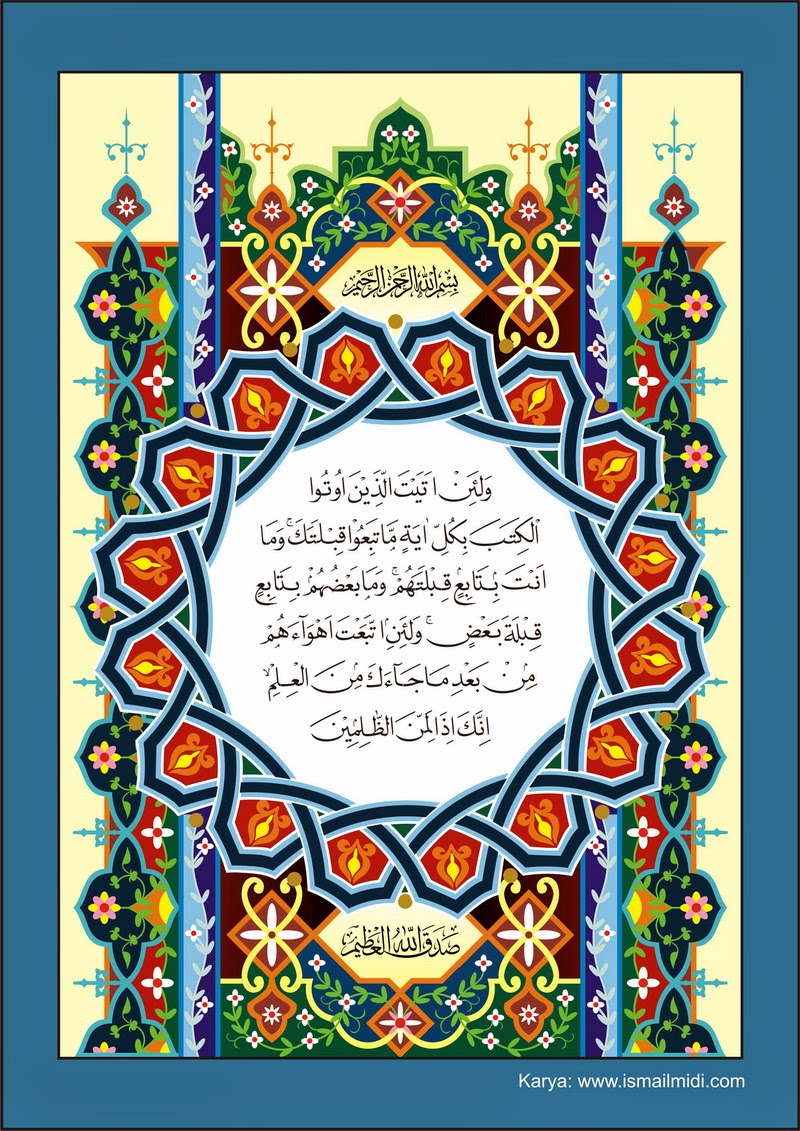 بِسْمِ اللّٰهِ الرَّحْمٰنِ الرَّحِيْمِ
وَلَئِنْ اَتَيْتَ الَّذِيْنَ اُوْتُوا
الْكِتٰبَ بِكُلِّ اٰيَةٍ مَّا تَبِعُوْا قِبْلَتَكَ ۚ وَمَا
اَنْتَ بِتَابِعٍ قِبْلَتَهُمْ ۚ وَمَا بَعْضُهُمْ بِتَابِعٍ
قِبْلَةَ بَعْضٍ ۚ وَلَئِنِ اتَّبَعْتَ اَهْوَآءَهُمْ
مِنْ بَعْدِ مَا جَآءَكَ مِنَ الْعِلْمِ
اِنَّكَ اِذًا لَّمِنَ الظّٰلِمِيْنَ
صَدَقَ اللّٰهُ الْعَظِيْمُ
Karya: www.ismailmidi.com